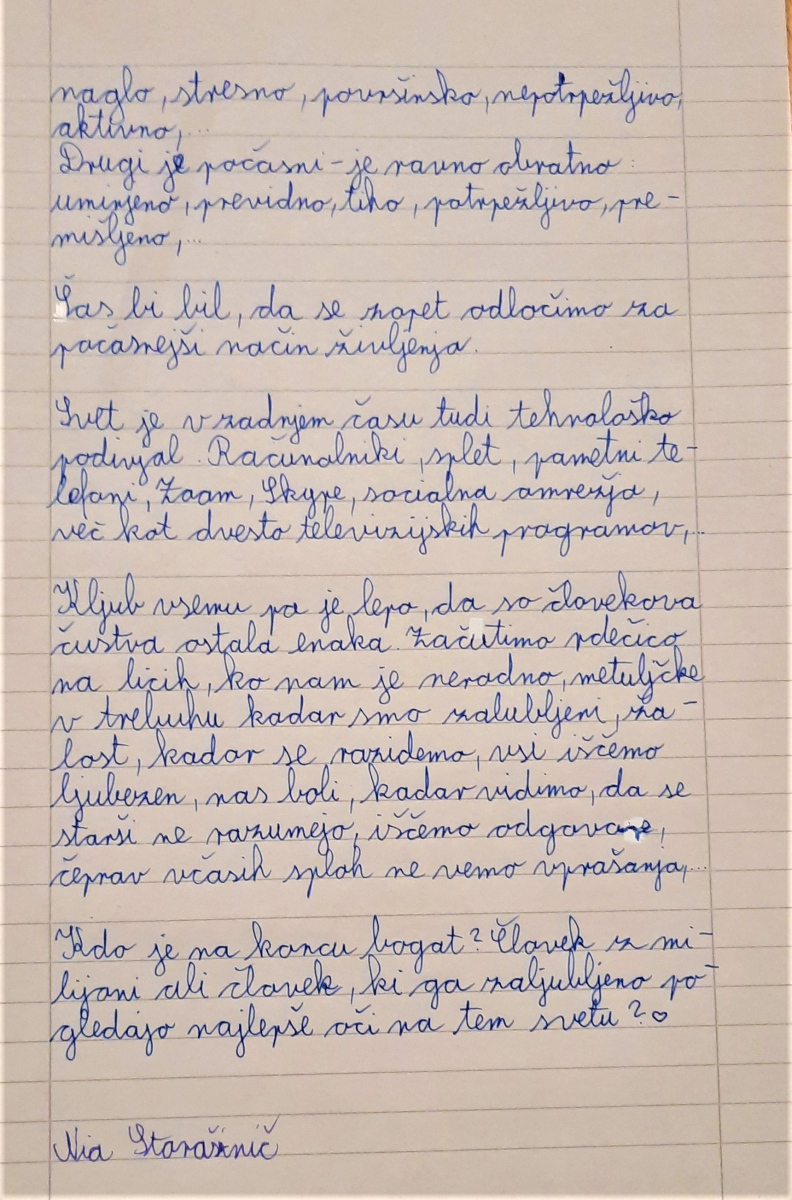 naglo, stresno, površinsko, nepotrpežljivo,
aktivno,...
Drugi je počasni - je ravno obratno:
umirjeno, previdno, tiho, potrpežljivo, pre-
mišljeno,...
Čas bi bil, da se zopet odločimo za
počasnejši način življenja.
Svet je v zadnjem času tudi tehnološko
podivjal. Računalniki, splet, pametni te-
lefoni, Zoom, Skype, socialna omrežja,
več kot dvesto televizijskih programov,...
Kljub vsemu pa je lepo, da so človekova
čustva ostala enaka. Začutimo rdečico
na licih, ko nam je nerodno, metuljčke
v trebuhu kadar smo zalubljeni, ža-
lost, kadar se razidemo, vsi iščemo
ljubezen, nas boli, kadar vidimo, da se
starši ne razumejo, iščemo odgovore,
čeprav včasih sploh ne vemo vprašanja,...
Kdo je na koncu bogat? Človek z mi-
lijoni ali človek, ki ga zaljubljeno po-
gledajo najlepše oči na tem svetu? ♡
Nia Starašinič